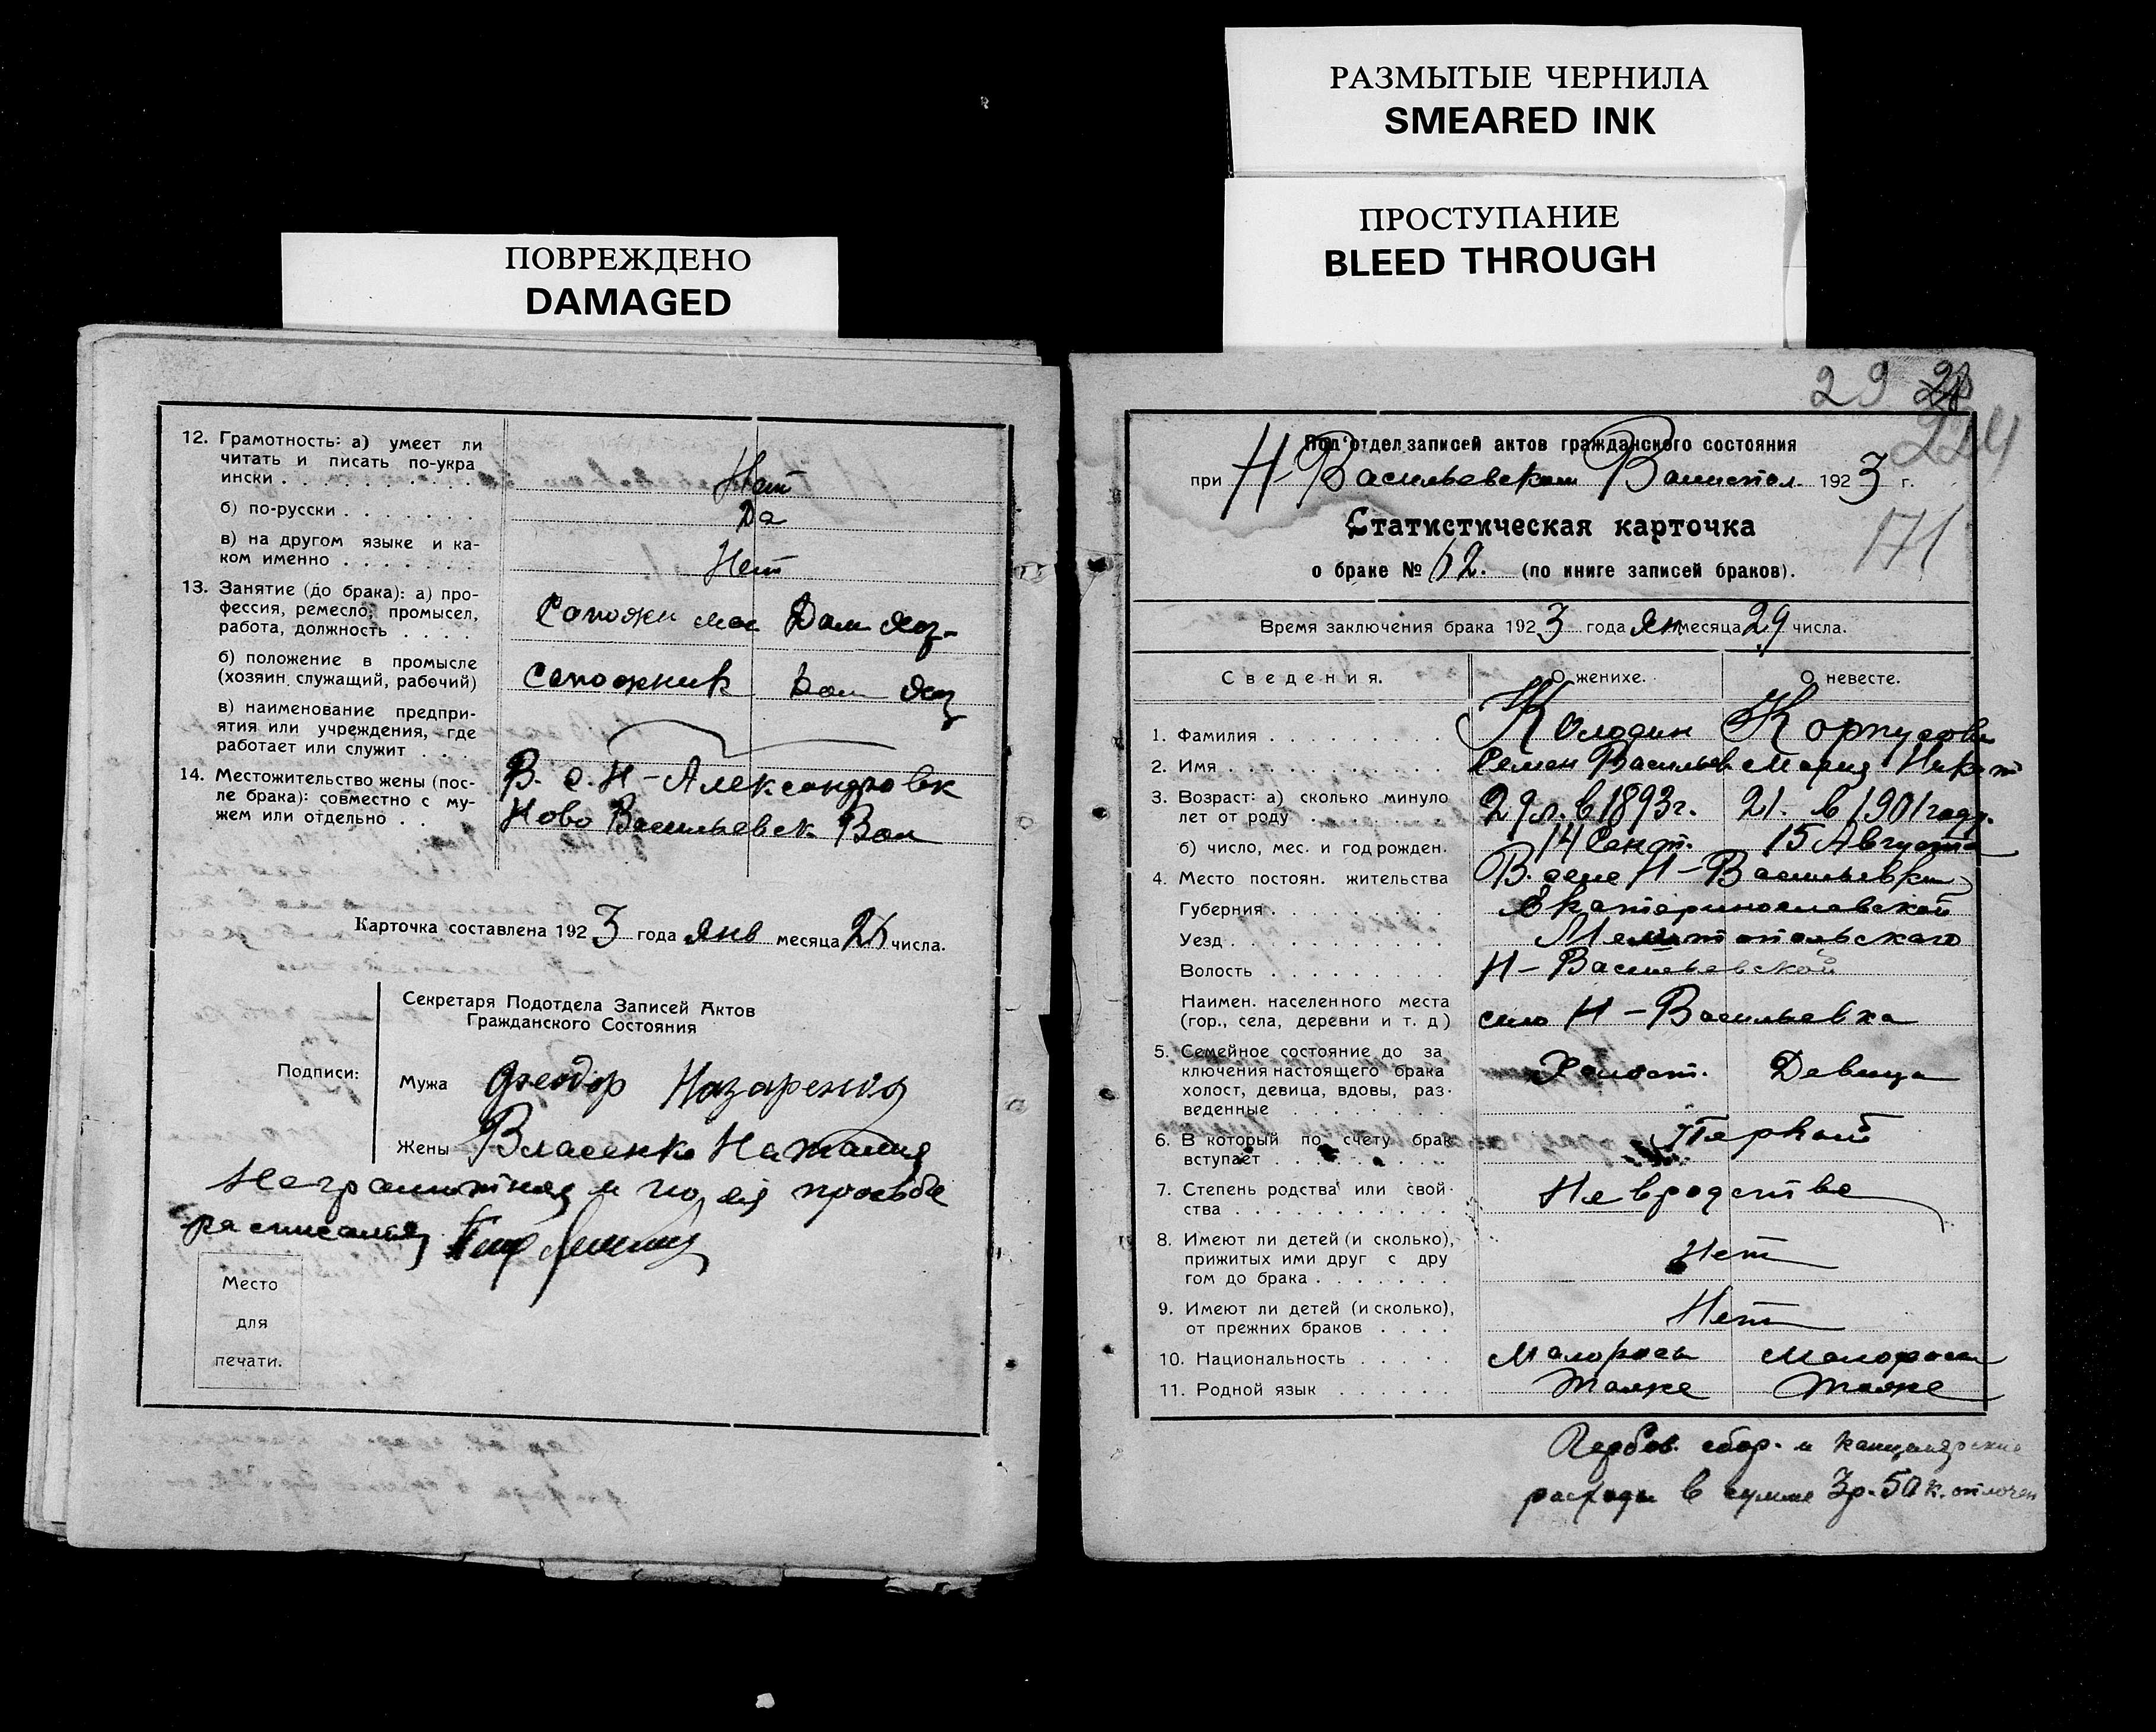 ПОВРЕЖДЕНО
DAMAGED
12. Грамотность: а) умеет ли
читать и писать по-укра
ински . . . . . . . . . Нет
б) по-русски . . . . . . . Да
в) на другом языке и ка-
ком именно . . . . . . . Нет
13. Занятие (до брака): а) про-
фессия, ремесло, промысел,
работа, должность . . . . Дом хоз-
б) положение в промысле
(хозяин, служащий, рабочий) сапожник Дом хоз
в) наименование предпри-
ятия или учреждения, где
работает или служит . . .
14. Местожительство жены (пос-
ле брака): совместно с му-
жем или отдельно . .
В. с. Н-Александровк
Ново Васильевск Вол
Карточка составлена 1923 года янв месяца числа.
Секретаря Подотдела Записей Актов
Гражданского Состояния
Подписи:
Мужа Феодор Назаренко
Жены Власенко Наталия
неграмотная и по ея просьбе
расписался
Место
для
печати.
РАЗМЫТЫЕ ЧЕРНИЛА
SMEARED INK
ПРОСТУПАНИЕ
BLEED THROUGH
29
224
Под'отдел записей актов гражданского состояния
при Н-Васильевском 1923 г.
171
Статистическая карточка
о браке № 62. (по книге записей браков).
Время заключения брака 1923 года Ян месяца 29 числа.
Сведения. О женихе. О невесте.
1. Фамилия . . . . . . . . . Колодин Корпусова
2. Имя . . . . . . . . . . . Семен Васильев Мария
3. Возраст: а) сколько минуло
лет от роду . . . . . . . 29 л. в 1893 г. 21. в 1901 году.
б) число, мес. и год рожден. 14 Сент. 15 Августа
4. Место постоян. жительства В. селе Н-Васильевки
Губерния . . . . . . . . . Екатеринославской
Уезд . . . . . . . . . . . Мелитопольскаго
Волость . . . . . . . . . Н-Васильевской
Наимен. населенного места
(гор., села, деревни и т. д) село Н-Васильевка
5. Семейное состояние до за
ключения настоящего брака
холост, девица, вдовы, раз-
веденные . . . . . . . . Холост. Девица
6. В который по счету брак
вступает . . . . . . . . . Первый
7. Степень родства или свой-
ства . . . . . . . . . . . Не в родстве
8. Имеют ли детей (и сколько),
прижитых ими друг с дру
гом до брака . . . . . . . Нет
9. Имеют ли детей (и сколько),
от прежних браков . . . . Нет
10. Национальность . . . . . Малоросы Малоросы
11. Родной язык . . . . . . Тоже Тоже
Гербов. сбор. и канцелярские
расходы в сумме 3р. 50 к. оплочен